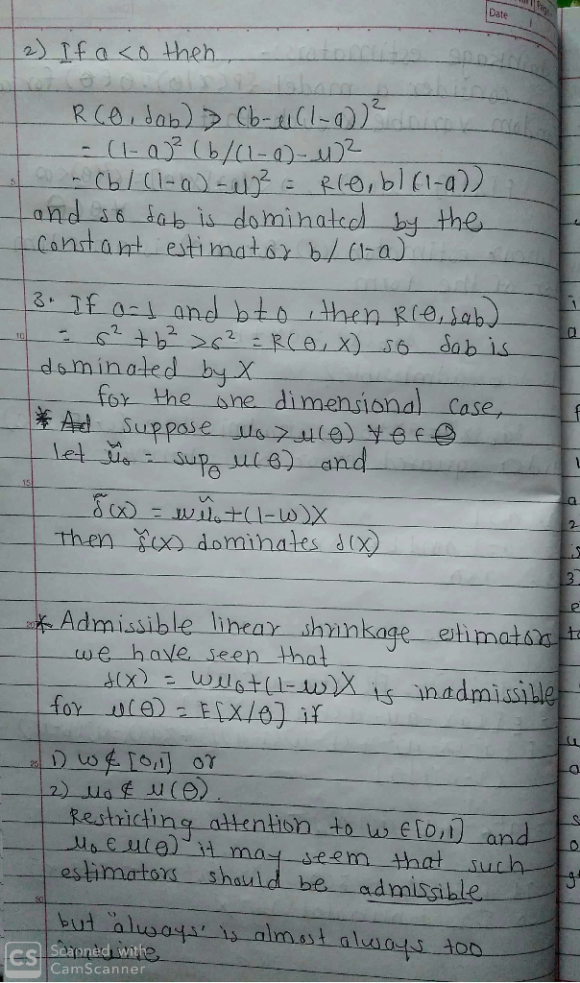 Date
2) If a < 0 then,
R(θ, δab) ≥ (b-μ(1-a))²
= (1-a)² (b/(1-a)-μ)²
= (b/(1-a)-μ)² = R(θ, b/(1-a))
and so δab is dominated by the
constant estimator b/(1-a)
3. If a=1 and b≠0, then R(θ, δab)
= σ² + b² > σ² = R(θ, X) so δab is
dominated by X
for the one dimensional case,
* suppose μ₀ > μ(θ) ∀ θ ∈ Θ
let μ̃₀ = supθ μ(θ) and
δ̃(x) = wμ̃₀+(1-w)X
Then δ̃(x) dominates δ(X)
* Admissible linear shrinkage estimators
we have seen that
δ(x) = wμ₀+(1-w)X is inadmissible
for μ(θ) = E[X/θ] if
1) w ∉ [0,1] or
2) μ₀ ∉ μ(Θ).
Restricting attention to w ∈ [0,1] and
μ₀ ∈ μ(Θ) it may seem that such
estimators should be admissible
but "always" is almost always too
CS Scanned with
CamScanner